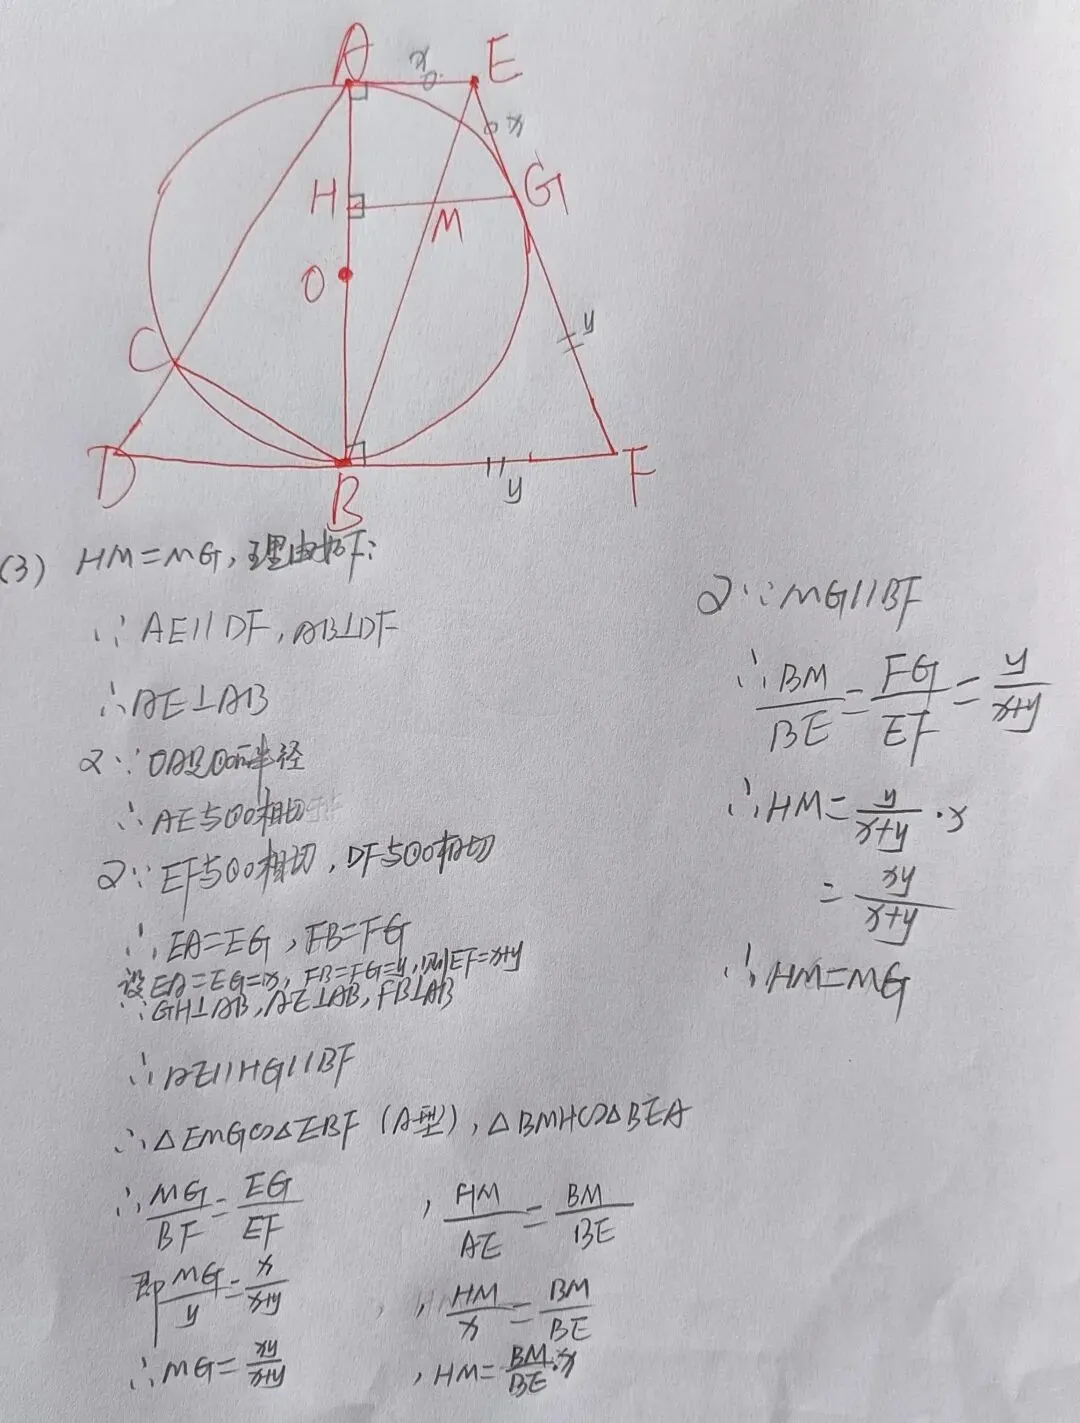 A
x
E
x
H
M
G
O
y
C
D
B
y
F
(3) HM=MG,理由如下:
∵AE//DF,AB⊥DF
∴AE⊥AB
又∵OA是⊙O的半径
∴AE与⊙O相切
又∵EF与⊙O相切,DF与⊙O相切
∴EA=EG,FB=FG
设EA=EG=x,FB=FG=y,则EF=x+y
∵GH⊥AB,AE⊥AB,FB⊥AB
∴AE//HG//BF
∴△EMG∽△EBF(A型),△BMH∽△BEA
∴MG/BF=EG/EF,HM/AE=BM/BE
即MG/y=x/x+y,HM/x=BM/BE
∴MG=xy/x+y,HM=BM/BE·x
又∵MG//BF
∴BM/BE=FG/EF=y/x+y
∴HM=y/x+y·x
=xy/x+y
∴HM=MG